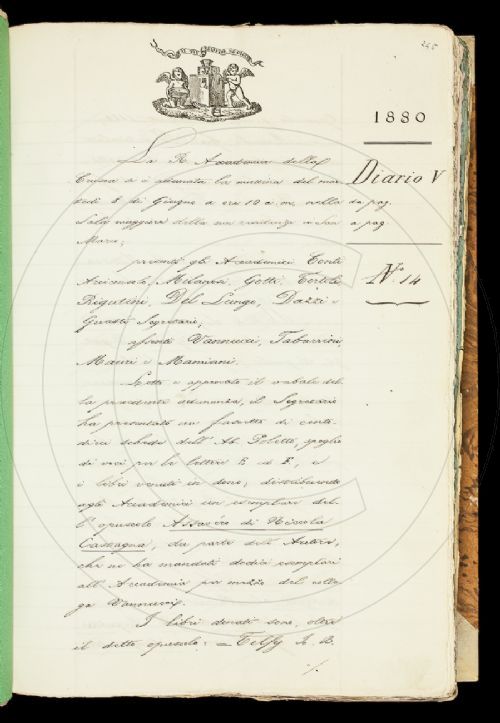 265
1880
La R. Accademia della
Crusca si è adunata la mattina del mar
tedì 8 di Giugno a ore 10 e m. nella
Sala maggiore della sua residenza in San
Marco;
Diario V
da pag.
a pag.
No. 14
presenti gli Accademici Conti
Arciconsolo, Milanesi, Gotti, Tortoli,
Rigutini, Del Lungo, Dazzi e
Guasti Segretario;
assenti Vannucci, Tabarrini,
Mauri e Mamiani.
Letto e approvato il verbale del-
la precedente adunanza, il Segretario
ha presentato un fascetto di cento-
dieci schede dell' Ab. Poletto, spoglio
di voci per le lettere E ed F, e
i libri venuti in dono; distribuendo
agli Accademici un esemplare del-
l' opuscolo Assozio di Niccola
Castagna, da parte dell' Autore,
che ne ha mandati dodici esemplari
all' Accademia per mezzo del colle
ga Vannucci.
I libri donati sono, oltre
il detto opuscolo: = Telfy I. B.
./.